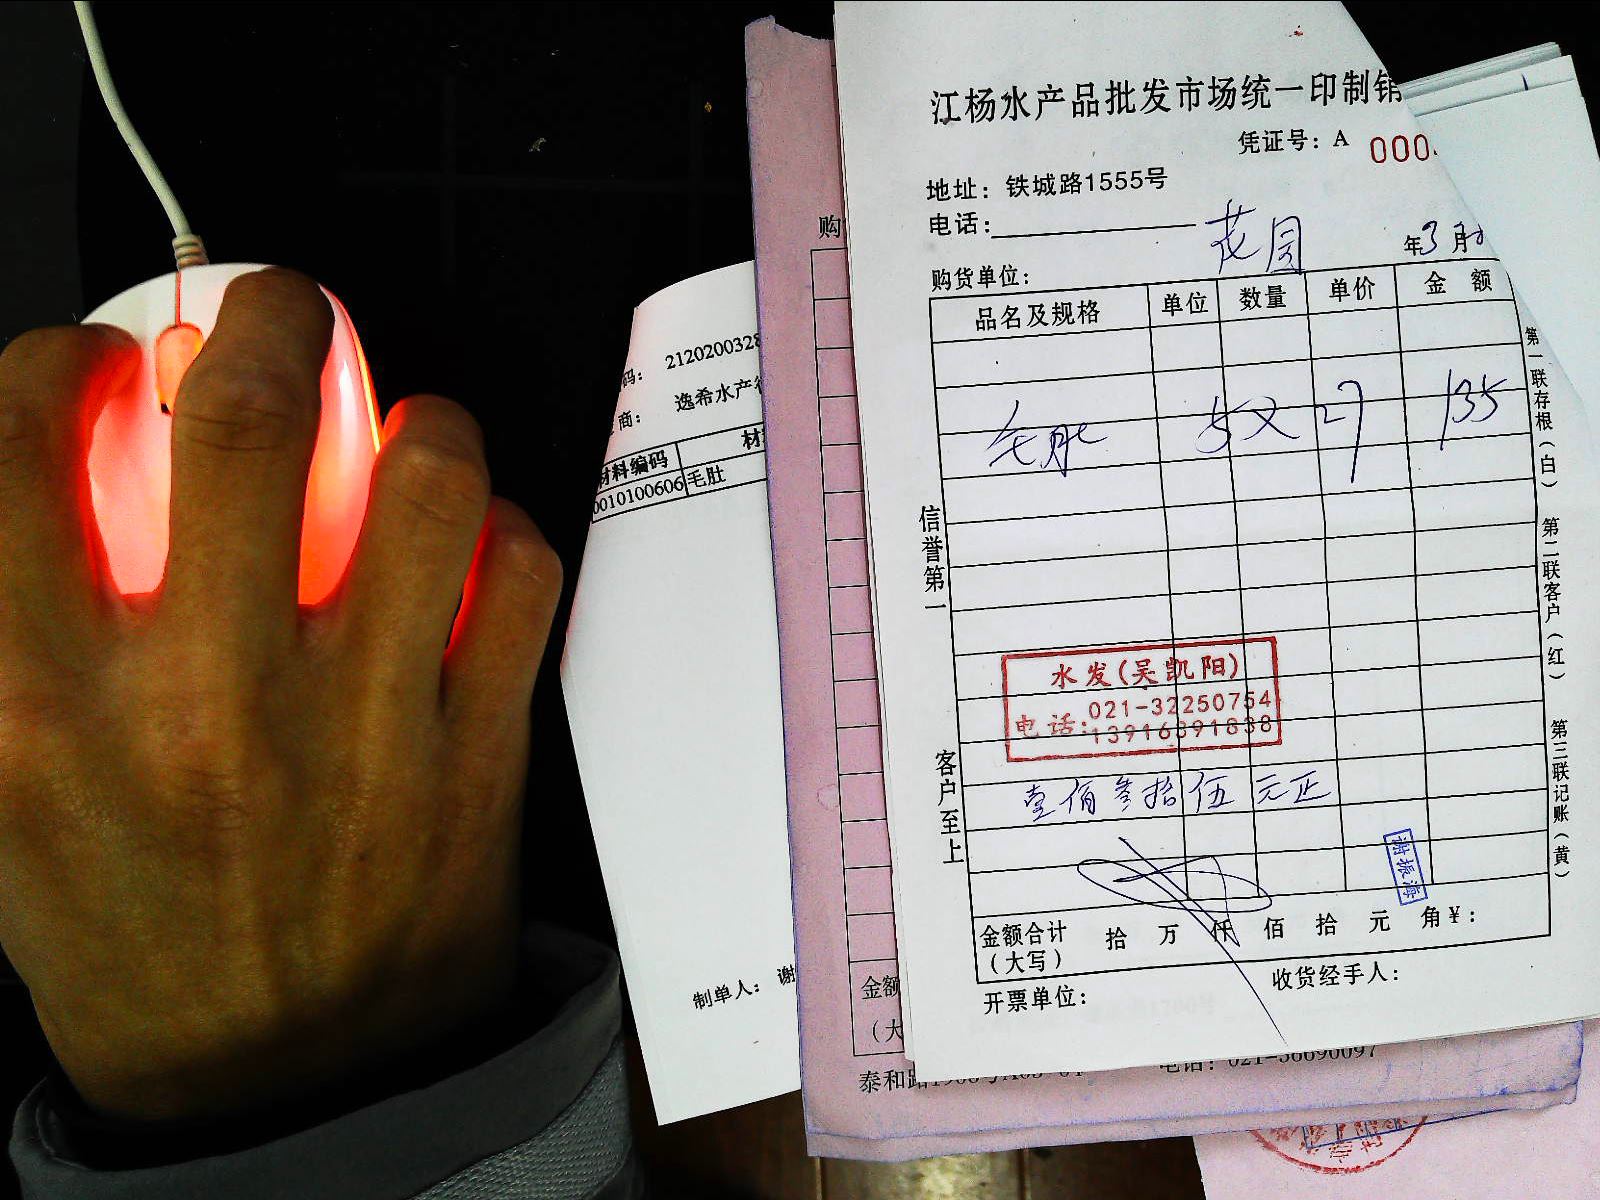 江杨水产品批发市场统一印制销
凭证号：A 000
地址：铁城路1555号
电话：
花园
年3月
购货单位：
品名及规格 单位 数量 单价 金额
毛肚 5 27 135
信誉第一
客户至上
水发(吴凯阳)
电话:021-32250754
13916391838
壹佰叁拾伍元正
谢振海
金额合计（大写） 拾 万 仟 佰 拾 元 角¥：
开票单位：
收货经手人：
第一联存根（白）
第二联客户（红）
第三联记账（黄）
购
金额
（大
泰和路
电话：021-56690097
码：212020032
商：逸希水产
材料编码 材
0010100606 毛肚
制单人：谢